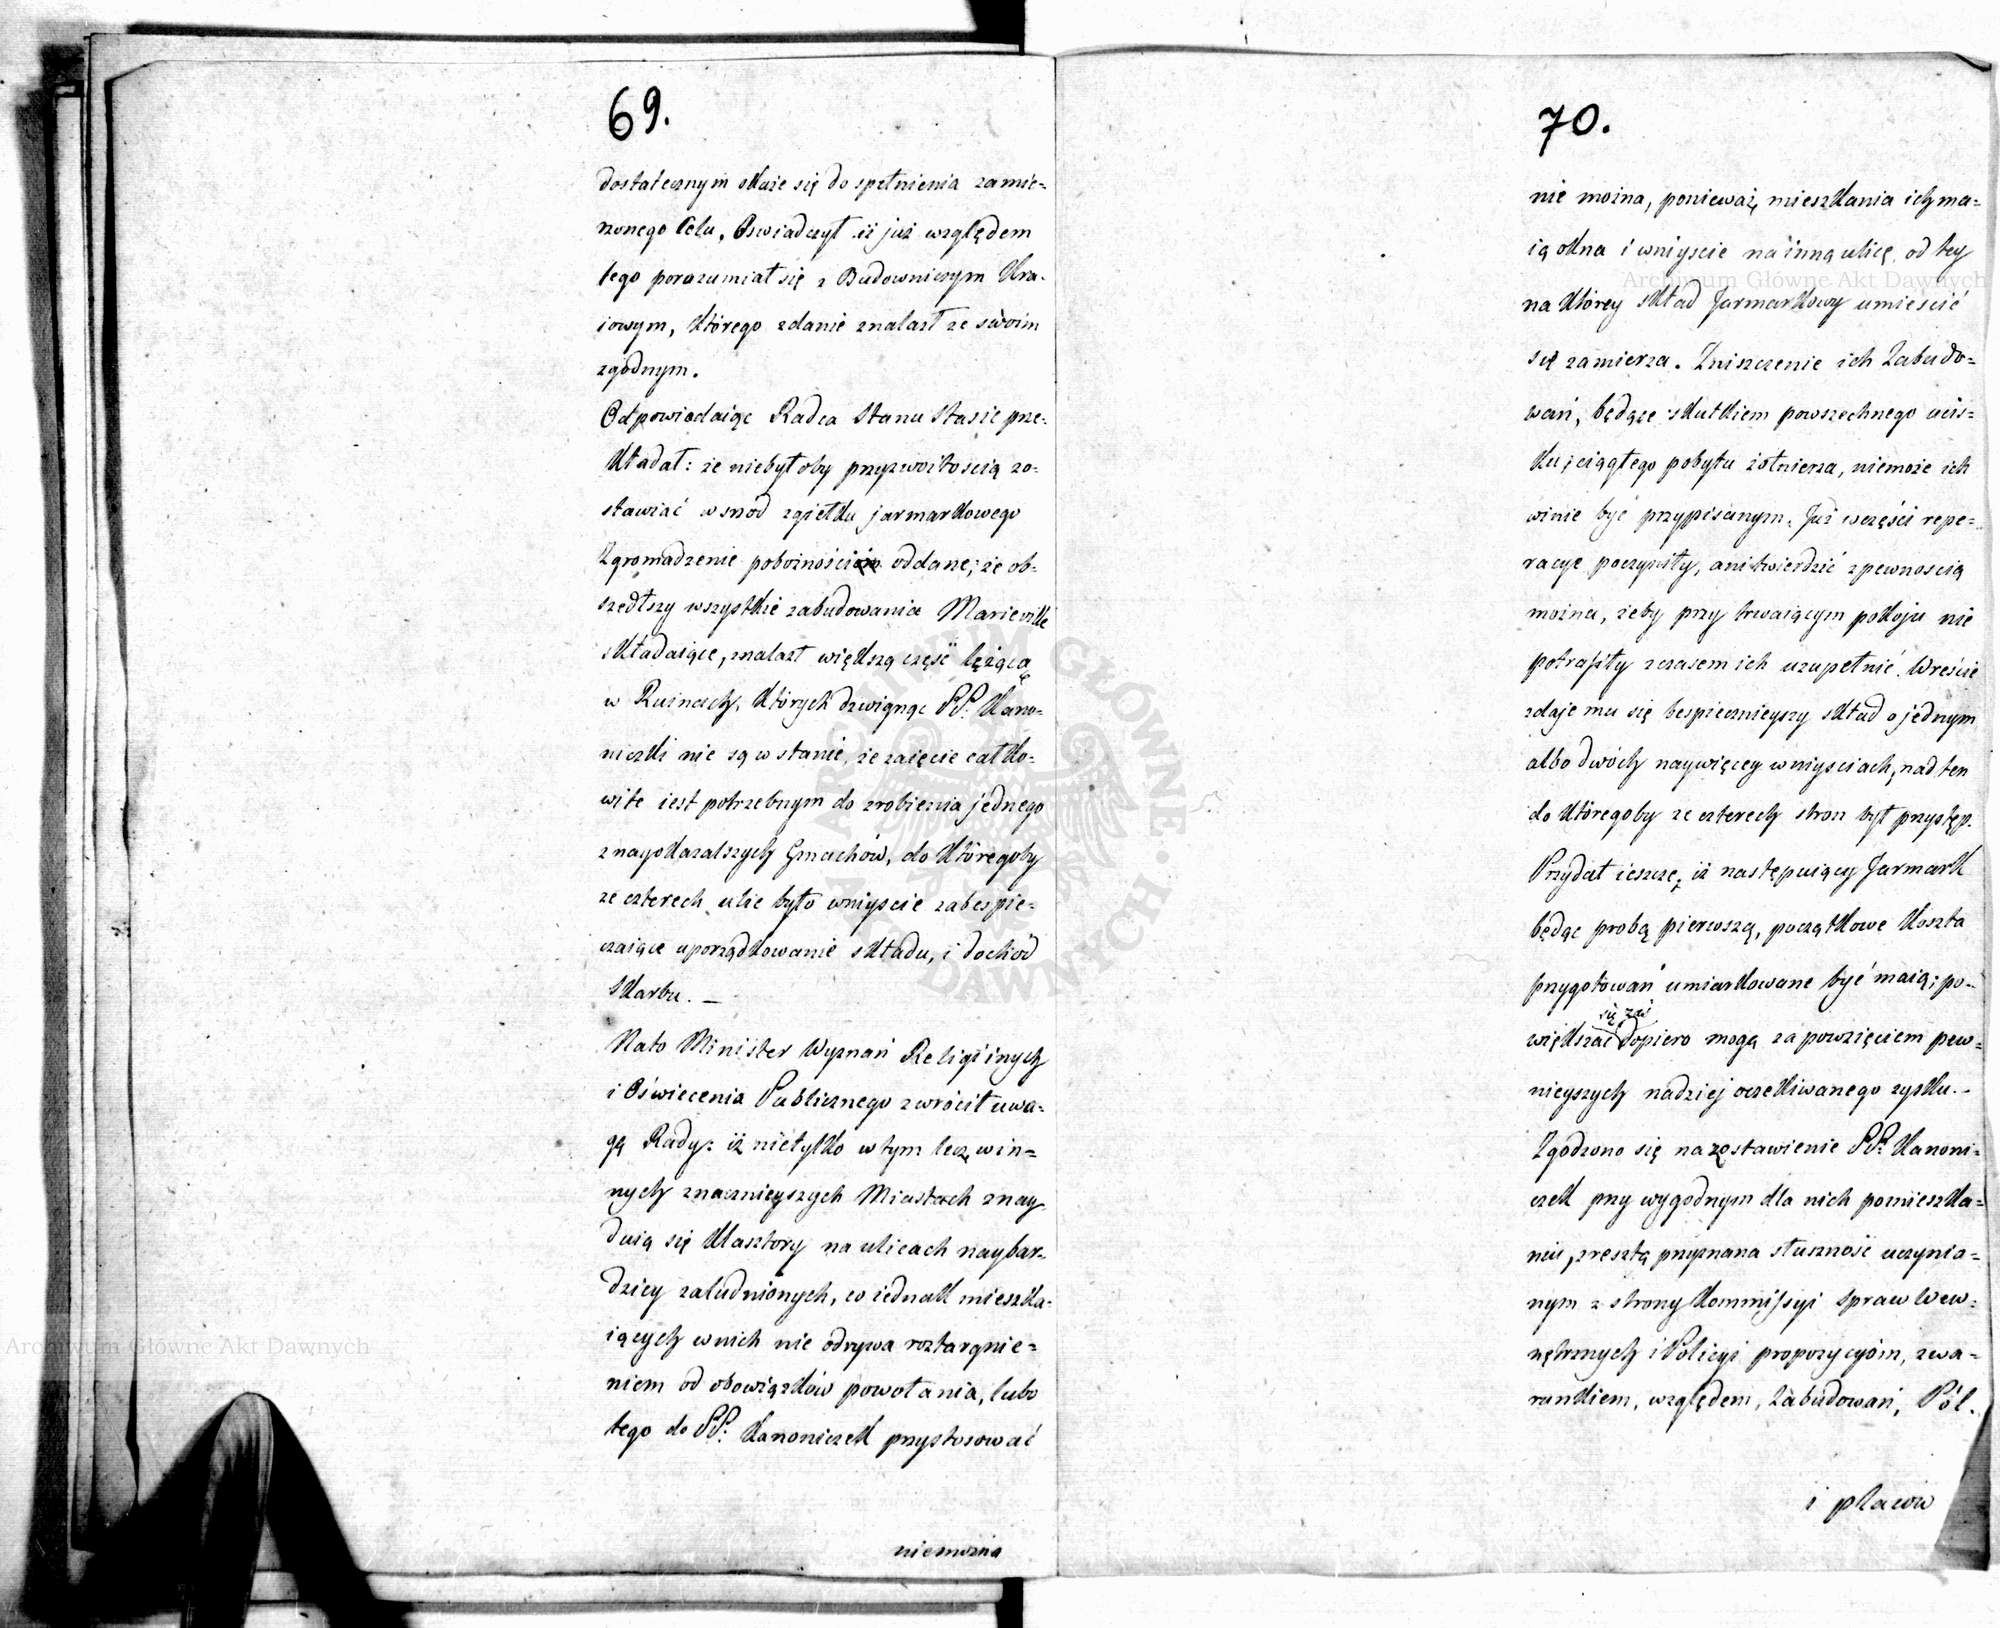 69.
dostatecznym okaże się do spełnienia zamie=
rzonego Celu. Oswiadczył iż już względem
tego porozumiał się z Budowniczym Kra-
iowym, którego zdanie znalazł ze swoim
zgodnym.
Odpowiedaiąc Radca Stanu Stasic prze-
kładał: że niebyłoby przyzwoitością zo-
stawiać wśrzód zgiełku jarmarkowego
Zgromadzenie pobożności oddane; że ob-
szedłszy wszystkie zabudowania Marieville
składaiące, znalazł większą część leżącą
w Ruinach, których dzwignąc PP. Kano-
niczki nie są w stanie, że zaięcie całko-
wite iest potrzebnym do zrobienia jednego
z nayokazalszych Gmachów, do któregoby
ze czterech ulic było wniyscie zabespie-
czaiące uporządkowanie składu, i dochód
Skarbu. —
Nato Minister Wyznań Religiinych
i Oświecenia Publicznego zwrócił uwa-
gą Rady: iż nietylko w tym lecz, w in=
nych znacznieyszych Miastach znay
duią się klasztory na ulicach naybar-
dziey zaludnionych, co iednak mieszka-
iących w nich nie odrywa roztargnie=
niem od obowiązków powołania, lubo
tego do PP. Kanoniczek przystosować
niemożna
70.
nie można, ponieważ, mieszkania ich ma=
ią okna i wniyscie na inną ulicę, od tey
na którey skład Jarmarkowy umieścić
się zamierza. Zniszczenie ich Zabudo=
wań, będące skutkiem powszechnego ucis=
ku, i ciągłego pobytu żołnierza, niemoże ich
winie być przypisanym. Już w części repe=
racye poczyniły, ani twierdzić z pewnoscią
można, żeby przy trwaiącym pokoju nie
potrafiły z czasem ich uzupełnić. Wreście
zdaje mu się bespiecznieyszy skład o jednym
albo dwóch naywięcey wniysciach, nad ten
do któregoby ze czterech stron był przystęp.
Przydał ieszcze, iż następuiący Jarmark
będąc probą pierwszą, początkowe koszta
przygotowań umiarkowane być maią; po-
się zaś
większać dopiero mogą za powzięciem pew=
nieyszych nadziej oczekiwanego zysku. -
Zgodzono się na zostawienie PP. Kanoni-
czek przy wygodnym dla nich pomieszka=
niu, zresztą przyznana słuszność uczynio=
nym z strony Kommissyi Spraw Wew-
nętrznych i Policyi propozycyóm, z wa-
runkiem, względem, Zabudowań, Pól.
i placow
Archiwum Główne Akt Dawnych
Archiwum Główne Akt Dawnych
ARCHIWUM GŁÓWNE AKT DAWNYCH